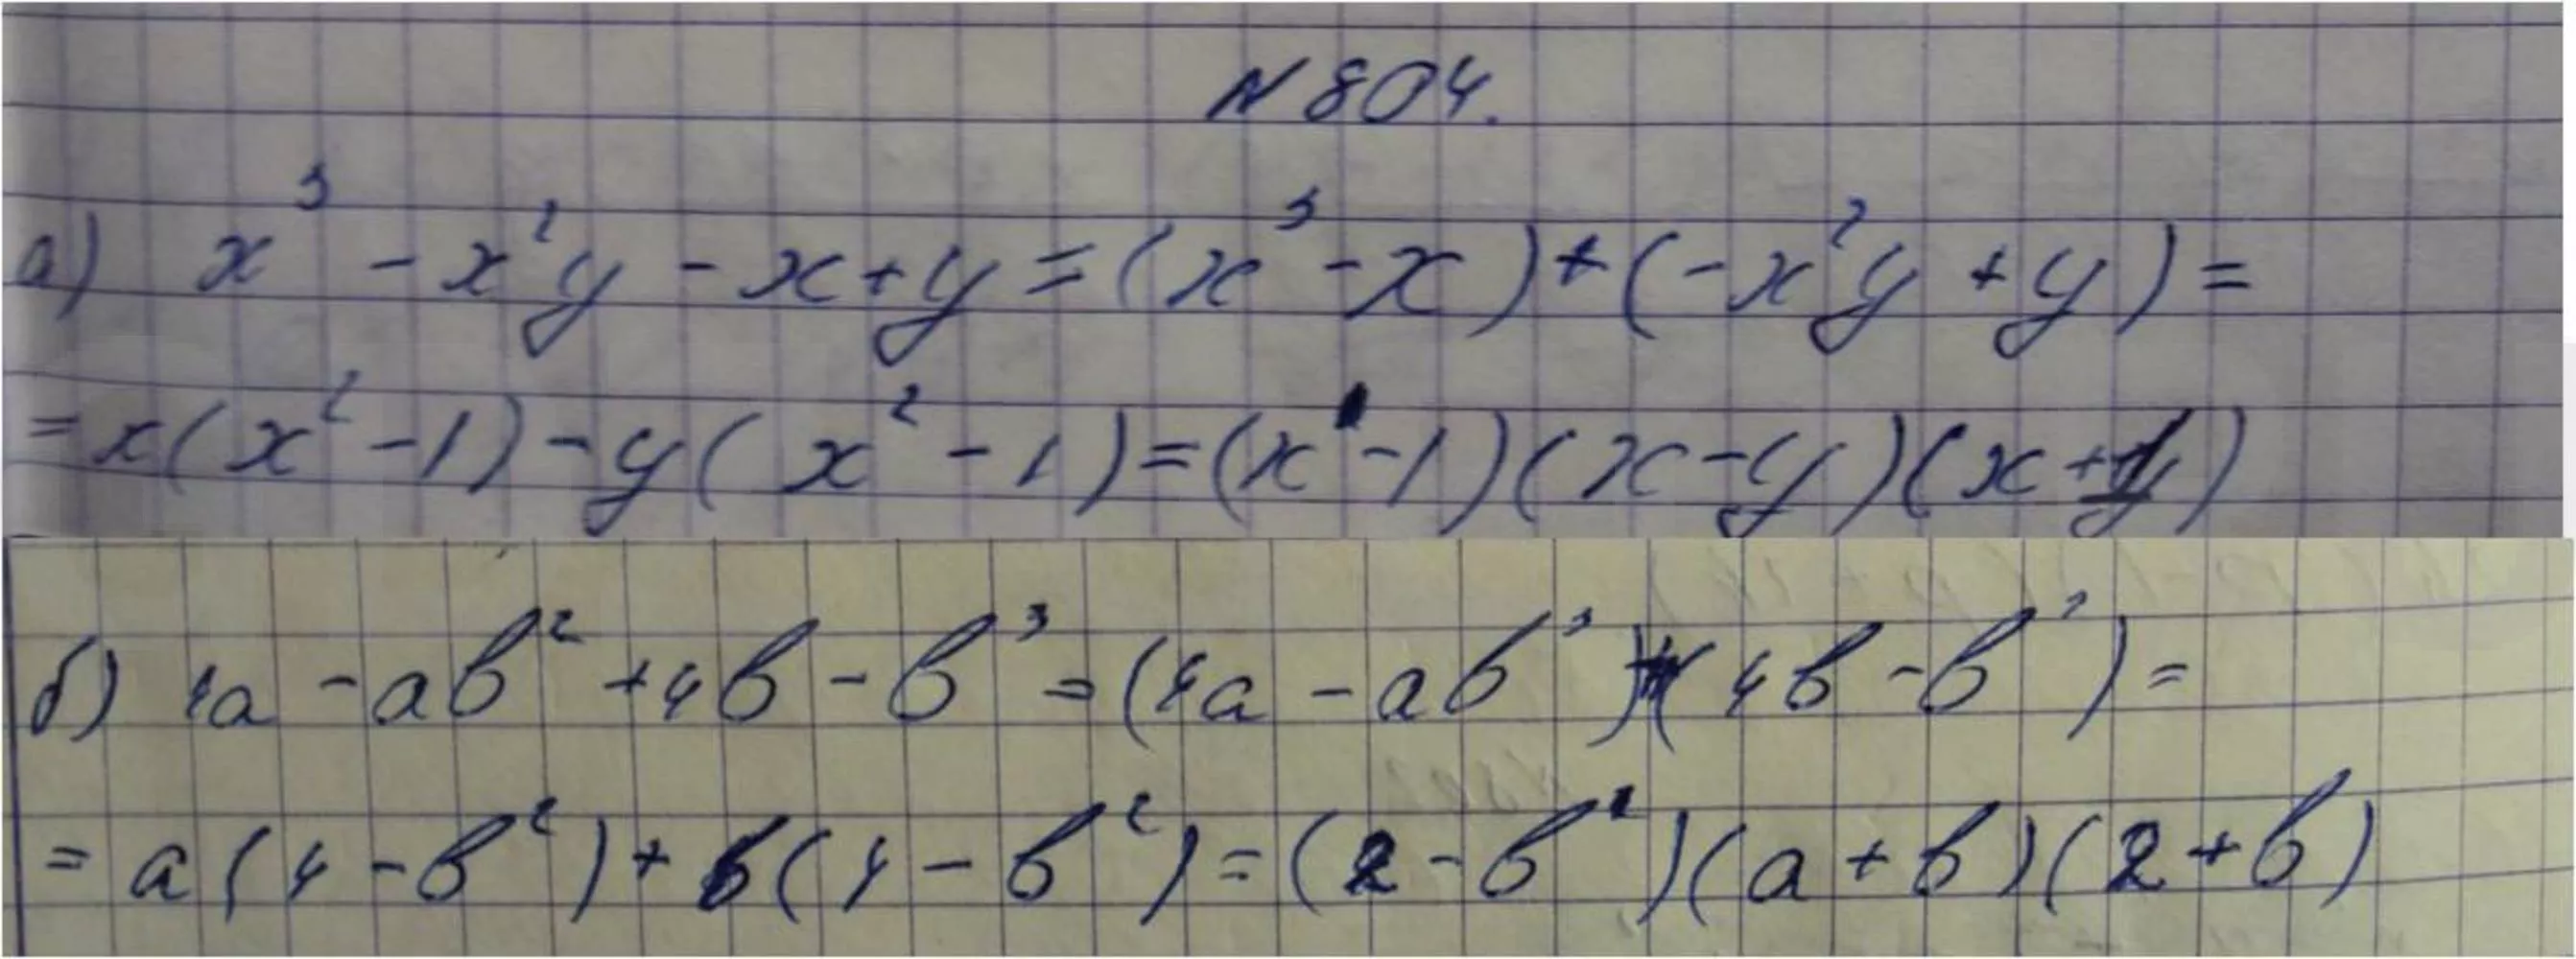 N 804.
а) x³ - x²y - x + y = (x³ - x) + (-x²y + y) =
= x(x² - 1) - y(x² - 1) = (x - 1)(x - y)(x + 1)
б) 4a - ab² + 4b - b³ = (4a - ab³) + (4b - b²) =
= a(4 - b²) + b(4 - b²) = (2 - b)(a + b)(2 + b)